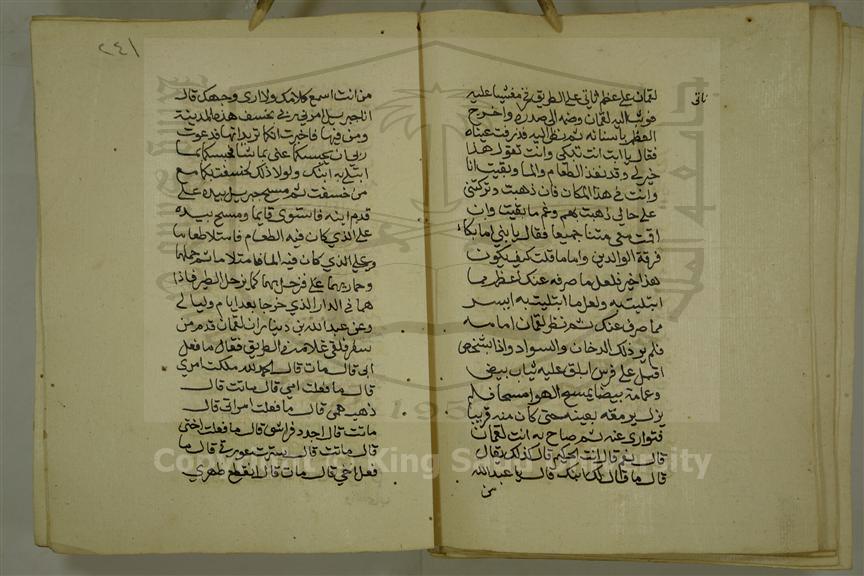 لقمان على عظم ناتي على الطريق فخر مغشيا عليه
ناتى
فوثب اليه لقمان وضمه الى صدره واخرج
العظم باسنانه ثم نظر اليه فذرفت عيناه
فقال يا ابت انت تبكى وانت تقول هذا
خير لى وقد نفذ الطعام والما وبقيت انا
وانت في هذا المكان فان ذهبت وتركتني
على حالي ذهبت بهم وغم ما بقيت وان
اقمت معي متنا جميعا فقال يا بني اما بكاى
فرقة الوالدين واما ما قلت كيف يكون
هذا خير فلعل ما صرفه عنك اعظم مما
ابتليت به ولعل ما ابتليت به ايسر
مما صرف عنك ثم نظر لقمان امامه
فلم ير ذلك الدخان والسواد واذا بشخص
اقبل على فرس ابلق عليه ثياب بيض
وعمامة بيضا يمسح الهوا مسحا فلم
يزل يرمقه بعينه حتى كان منه قريبا
فتوارى عنه ثم صاح به انت لقمان
قال نعم قال انت الحكيم قال كذلك يقال
قال ما قال لك ابنك قال يا عبد الله
من
٢٤١
من انت اسمع كلامك ولا ارى وجهك قال
انا جبريل امرني ربي بخسف هذه المدينة
ومن فيها فاخبرت انكما تريدانها فدعوت
ربي ان يحبسكما عني بما شا فحبسكما بما
ابتلى به ابنك ولولا ذلك لخسفت بكما مع
من خسفت ثم مسح جبريل بيده على
قدم ابنه فاستوى قايما ومسح بيده
على الذي كان فيه الطعام فامتلا طعاما
وعلى الذي كان فيه الما فامتلا ما ثم حملهما
وحماريهما فزجل بهما كما يزجل الطير فاذا
هما في الدار الذي خرجا بعد ايام وليالي
وعن عبد الله بن دينار ان لقمان قدم من
سفر فلقي غلامه في الطريق فقال ما فعل
ابي قال مات قال الحمد لله ملكت امري
قال ما فعلت امي قال ماتت قال
ذهب همي قال ما فعلت امراتي قال
ماتت قال اجدد فراشي قال ما فعلت اختي
قال ماتت قال سترت عورتي قال ما
فعل اخي قال مات قال انقطع ظهري
Copyright © King Saud University
1957